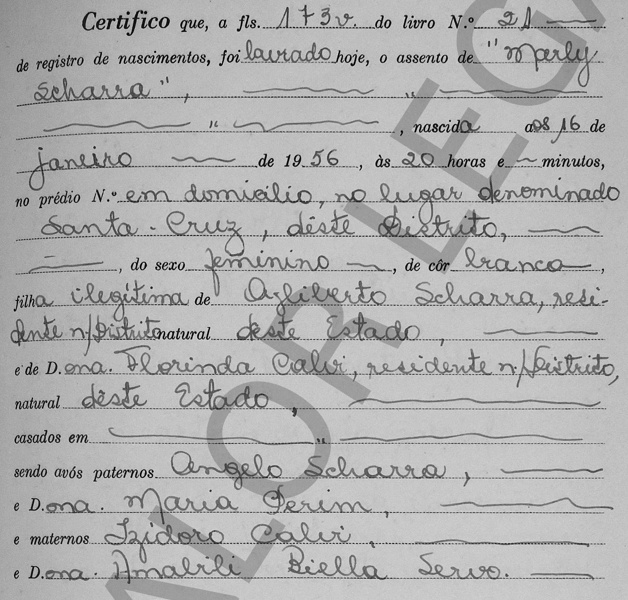 Certifico que, a fls. 173v. do livro N.º 21
de registro de nascimentos, foi lavrado hoje, o assento de "Marly
Scharra",
, nascida aos 16 de
janeiro de 1956, às 20 horas e minutos,
no prédio N.º em domicílio, no lugar denominado
Santa-Cruz, dêste Distrito,
, do sexo feminino, de côr branca,
filha ilegítima de Agliberto Scharra, resi-
dente n/Distrito natural deste Estado,
e de D.ona. Florinda Calvi, residente n/Distrito,
natural dêste Estado,
casados em
sendo avós paternos Angelo Scharra,
e D.ona. Maria Perim,
e maternos Izidoro Calvi,
e D.ona. Biella Servo.
VALOR LEGA